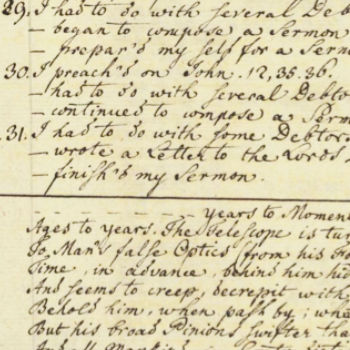 29. I had to do with several Deb
– began to compose a Sermon
– prepar'd my self for a Serm
30. I preach'd on John. 12, 35. 36.
– had to do with several Debto
– continued to compose a Serm
31. I had to do with some Debtors
– wrote a Letter to the Lords
– finish'd my Sermon.
– – – – – – – Years to Momen
Ages to Years. The Telescope is tur
To Man's false Optics (from his
Time, in advance, behind him hid
And seems to creep, decrepit with
Behold him, when past by; wha
But his broad Pinions swifter tha
And all